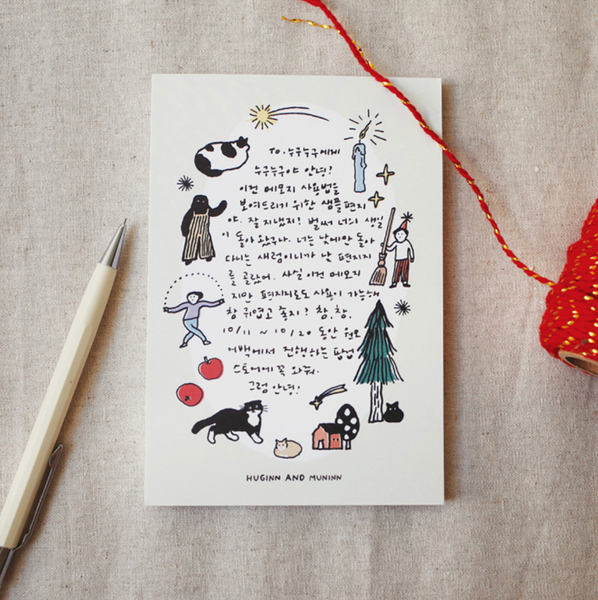 TO. 누구누구에게
누구누구야 안녕!
이건 메모지 사용법을
보여드리기 위한 샘플 편지
야. 잘 지냈지? 벌써 너의 생일
이 돌아왔구나. 너는 낮에만 돌아
다니는 새럼이니까 낮 편지지
를 골랐어. 사실 이건 메모지
지만 편지지로도 사용이 가능해
참 귀엽고 좋지? 참, 참.
10/11 ~ 10/20 동안
에서 진행하는 팝업
스토어에 꼭 와줘.
그럼 안녕!
HUGINN AND MUNINN